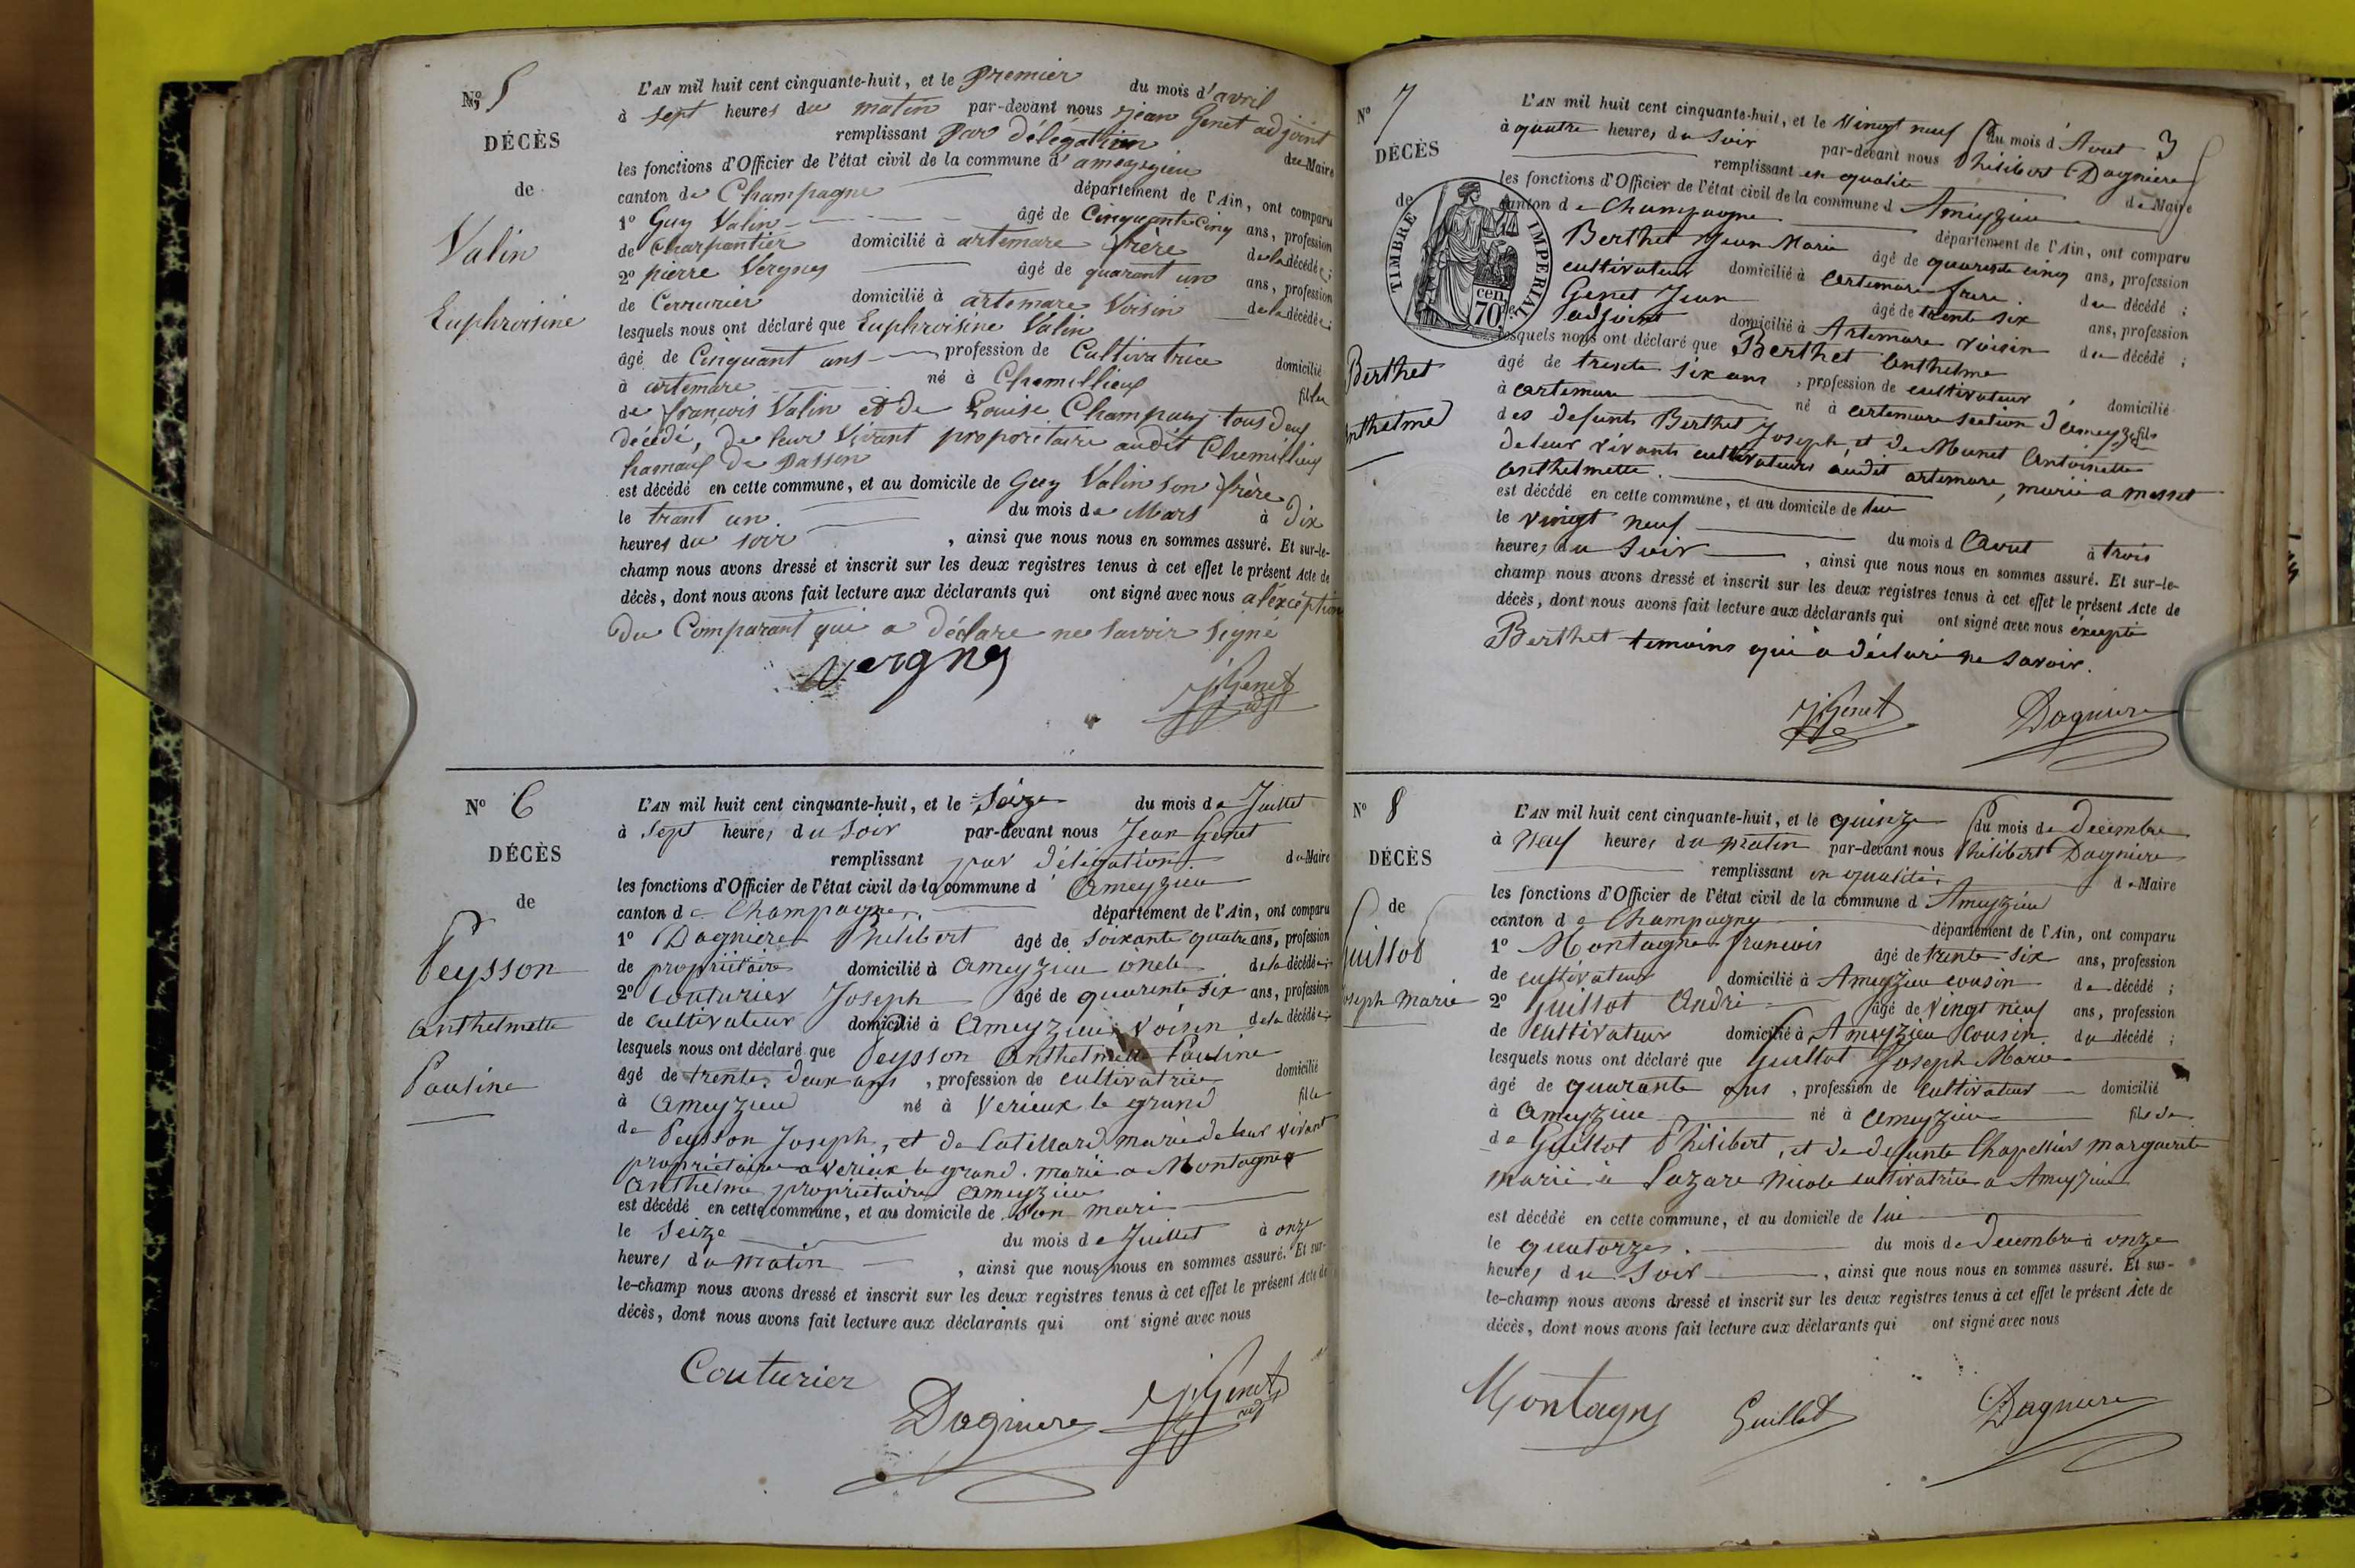 N° 5
DÉCÈS
de
Valin
Euphroisine
L'AN mil huit cent cinquante-huit, et le premier du mois d'avril
à sept heures du matin par-devant nous jean Genet adjoint
remplissant par délégation du Maire
les fonctions d'Officier de l'état civil de la commune d'ameyzieu
canton de Champagne département de l'Ain, ont comparu
1° Guy Valin âgé de Cinquante Cinq ans, profession
de Charpantier domicilié à artemare frère de la décédée;
2° pierre Vergny âgé de quarant un ans, profession
de Cerrurier domicilié à artemare Voisin de la décédée;
lesquels nous ont déclaré que Euphroisine Valin
âgé de Cinquant ans profession de Cultivatrice domicilié
à artemare né à Chemillieux fille
de françois Valin et de Louise Champany tous deux
décédé, de leur Vivant proporitaire audit Chemillieux
hamaux de passen
est décédé en cette commune, et au domicile de Guy Valin son frère
le trant un du mois de Mars à dix
heures du soir, ainsi que nous nous en sommes assuré. Et sur-le-
champ nous avons dressé et inscrit sur les deux registres tenus à cet effet le présent Acte de
décès, dont nous avons fait lecture aux déclarants qui ont signé avec nous a l'exception
du Comparant qui a déclare ne savoir signé
Vergny
J Genet
adjt
N° 6
DÉCÈS
de
Peysson
anthelmette
Pauline
L'AN mil huit cent cinquante-huit, et le Seize du mois de Juillet
à sept heures du soir par-devant nous Jean Genet
remplissant par délégation du Maire
les fonctions d'Officier de l'état civil de la commune d'Ameyzieu
canton de Champagne département de l'Ain, ont comparu
1° Dagniere Philibert âgé de soixante quatre ans, profession
de propriétaire domicilié à Ameyzieu oncle de la décédée;
2° Couturier Joseph âgé de quarente six ans, profession
de cultivateur domicilié à Ameyzieu voisin de la décédée;
lesquels nous ont déclaré que Peysson Anthelmette Pauline
âgé de trente deux ans, profession de cultivatrice domicilié
à Ameyzieu né à Verieux le grand fille
de Peysson Joseph, et de Latillard marie de leur vivant
propriétaire a Verieux le grand. marié a Montagne
Anthelme propriétaire Ameyzieu
est décédé en cette commune, et au domicile de son mari
le Seize du mois de Juillet à onze
heures du matin, ainsi que nous nous en sommes assuré. Et sur-
le-champ nous avons dressé et inscrit sur les deux registres tenus à cet effet le présent Acte de
décès, dont nous avons fait lecture aux déclarants qui ont signé avec nous
Couturier
Dagniere
J Genet
adj
3
N° 7
DÉCÈS
de
TIMBRE IMPÉRIAL
70 cen
Berthet
Anthelme
L'AN mil huit cent cinquante-huit, et le vingt neuf du mois d'Aout
à quatre heures du soir par-devant nous Philibert Dagniere
remplissant en qualité de Maire
les fonctions d'Officier de l'état civil de la commune d'Ameyzieu
canton de Champagne département de l'Ain, ont comparu
Berthet Jean Marie âgé de quarente cinq ans, profession
cultivateur domicilié à Artemare frere du décédé;
Genet Jean âgé de trente six ans, profession
adjoint domicilié à Artemare voisin du décédé;
lesquels nous ont déclaré que Berthet Anthelme
âgé de trente six ans, profession de cultivateur domicilié
à artemare né à artemare section d'ameyz fils
des defunts Berthet Joseph et de Monet Antoinette
de leur vivants cultivateurs audit artemare, marié a masset
Anthelmette.
est décédé en cette commune, et au domicile de lui
le vingt neuf du mois d Aout à trois
heures du soir, ainsi que nous nous en sommes assuré. Et sur-le-
champ nous avons dressé et inscrit sur les deux registres tenus à cet effet le présent Acte de
décès, dont nous avons fait lecture aux déclarants qui ont signé avec nous éxcepté
Berthet temoins qui a déclaré ne savoir.
J Genet
Dagniere
N° 8
DÉCÈS
de
Guillot
Joseph Marie
L'AN mil huit cent cinquante-huit, et le quinze du mois de Decembre
à neuf heures du matin par-devant nous Philibert Dagniere
remplissant en qualité de Maire
les fonctions d'Officier de l'état civil de la commune d Ameyzieu
canton de Champagne département de l'Ain, ont comparu
1° Montagne francois âgé de trente six ans, profession
de cultivateur domicilié à Ameyzieu cousin du décédé;
2° Guillot André âgé de vingt neuf ans, profession
de cultivateur domicilié à Ameyzieu Cousin du décédé;
lesquels nous ont déclaré que Guillot Joseph Marie
âgé de quarante ans, profession de cultivateur domicilié
à Ameyzieu né à Ameyzieu fils de
de Guillot Philibert, et de defunte Chapellus marguerite
marié à Lazare Nicole cultivatrice a Ameyzieu
est décédé en cette commune, et au domicile de lui
le quatorze du mois de Decembre à onze
heures du soir, ainsi que nous nous en sommes assuré. Et sur-
le-champ nous avons dressé et inscrit sur les deux registres tenus à cet effet le présent Acte de
décès, dont nous avons fait lecture aux déclarants qui ont signé avec nous
Montagne
Guillot
Dagniere